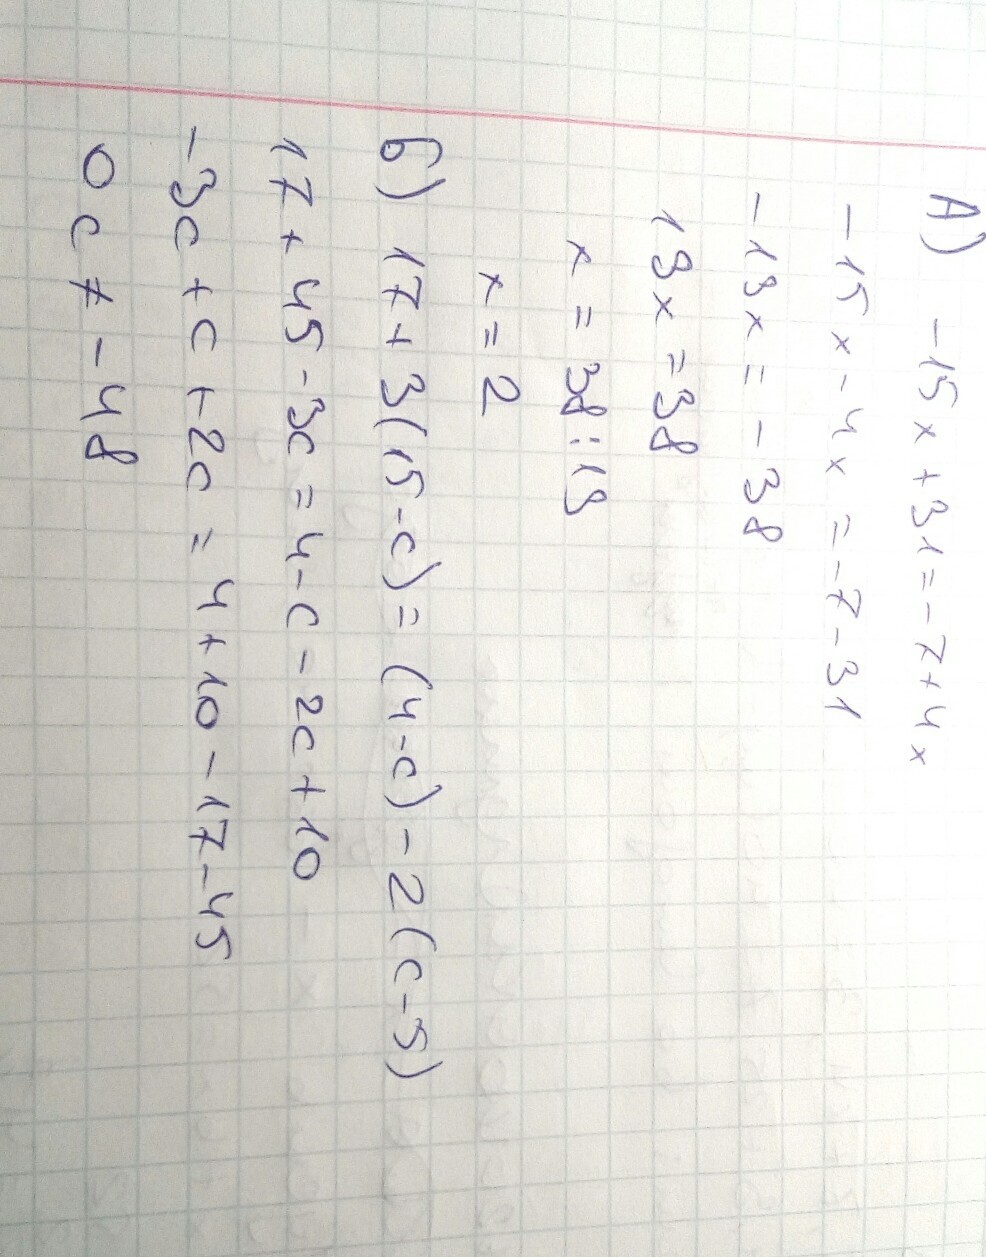 А) -15x + 31 = -7 + 4x
-15x - 4x = -7 - 31
-19x = -38
19x = 38
x = 38 : 19
x = 2
б) 17 + 3(15 - c) = (4 - c) - 2(c - 5)
17 + 45 - 3c = 4 - c - 2c + 10
-3c + c + 2c = 4 + 10 - 17 - 45
0c ≠ -48